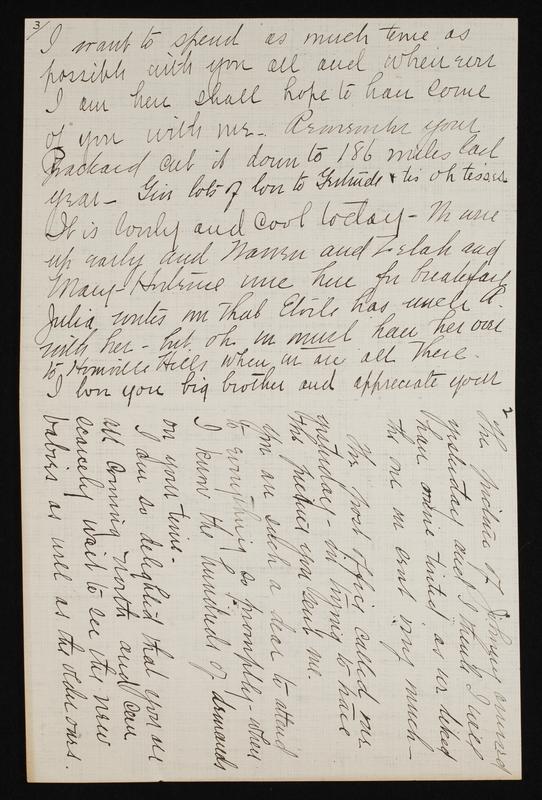 3/
I want to spend as much time as
possible with you all and when ever
I am here shall hope to have some
of you with me. Remember your
Packard cut it down to 186 miles last
year - Give lots of love to Gertrude &
It is lovely and cool today - We were
up early and Warren and Zelah and
Mary Hortense were here for breakfast
Julia writes me that Etoile has uncle A.
with her - but oh we must have her over
to Hills when we are all there.
I love you big brother and appreciate your
2
The picture of Johnny arrived
yesterday and I think I will
have mine tinted as we liked
the one we sent very much -
The post office called me
yesterday - in trying to trace
the picture you sent me.
You are such a dear to attend
to everything so promptly - when
I know the hundreds of demands
on your time -
I am so delighted that you are
all coming North and can
scarcely wait to see the new
babies as well as the older ones.